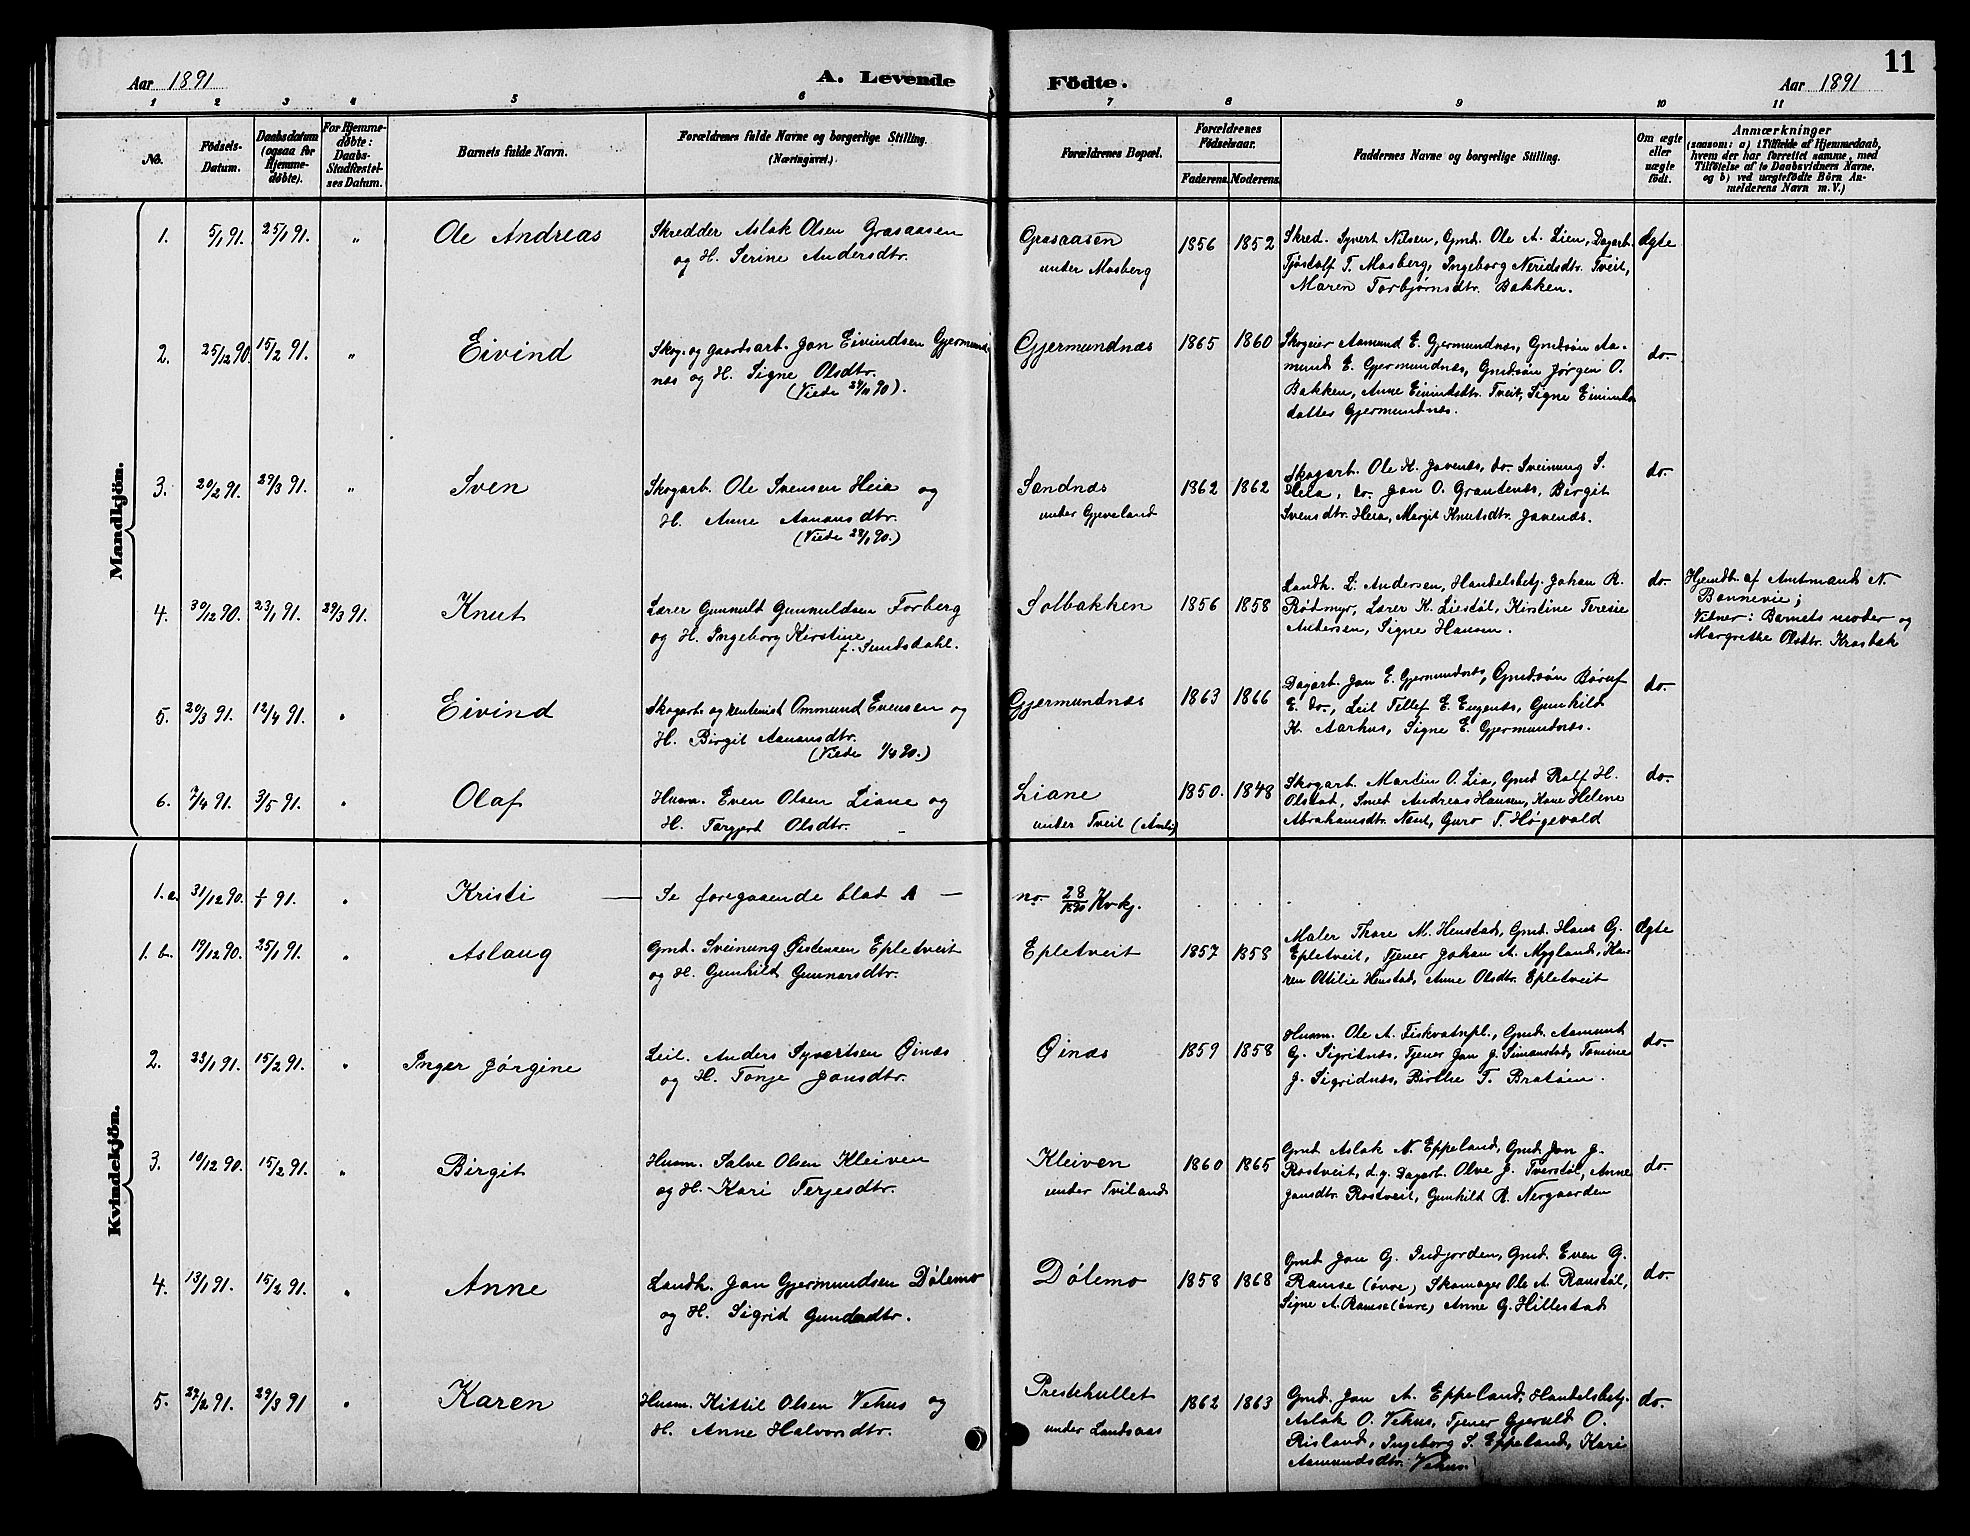 11
Aar 1891
A. Levende Födte.
Aar 1891
1 2 3 4 5 6 7 8 9 10 11
No.
Födsels-Datum.
Daabsdatum (ogsaa for Hjemme-döbte).
For Hjemme-döbte: Daabs-Stadfæstel-ses Datum.
Barnets fulde Navn.
Forældrenes fulde Navne og borgerlige Stilling.
(Næringsvei.)
Forældrenes Bopæl.
Forældrenes Födselsaar.
Faderens. Moderens.
Faddernes Navne og borgerlige Stilling.
Om ægte eller uægte födt.
Anmærkninger
(saasom: a) i Tilfælde af Hjemmedaab,
hvem der har forrettet samme, med
Tilföielse af to Daabsvidners Navne.
og b) ved uægtefödte Börn An-
melderens Navn m. V.)
Mandkjön.
1. 5/1 91. 25/1 91. " Ole Andreas
Skredder Aslak Olsen Grasaasen
og H. Serine Andersdtr.
Grasaasen
under Mosberg
1856 1852
Skred. Syvert Nilsen, Gmd. Ole A. Lien, Dagarb.
Tjöstolf T. Mosberg, Ingeborg Neridsdtr. Tveit,
Maren Torbjørnsdtr. Bakken.
Ægte
2. 25/12 90. 15/2 91. " Eivind
Skog- og Gaardsarb. Jon Eivindsen Gjermund-
næs og H. Signe Olsdtr.
(Viede 24/11 90).
Gjermundnæs
1865 1860
Skogeier Aamund E. Gjermundnæs, Gmdsön Aa-
mund E. Gjermundnæs, Gmdsön Jörgen O.
Bakken, Anne Eivindsdtr. Tveit, Signe Eivinds
datter Gjermundnæs.
do.
3. 20/2 91. 29/3 91. " Sven
Skogarb. Ole Svensen Heia og
H. Anne Aanonsdtr.
(Viede 29/1 90.)
Sandnæs
under Gjeveland
1862 1862
Skogarb. Ole K. Jovenæs, do. Sveinung S.
Heia, do. Jon O. Grautenæs, Birgit
Svensdtr. Heia, Margit Knutsdtr. Jovenæs.
do.
4. 30/12 90. 23/1 91. 29/3 91. Knut
Lærer Gunnuld Gunnuldsen Forberg
og H. Ingeborg Kirstine
f. Smedsdahl.
Solbakken
1856 1858
Landh. L. Andersen, Handelsbetj. Johan R.
Rödmyr, Lærer K. Liestöl, Kirstine Teresie
Andersen, Signe Hansen.
do.
Hjemdt. af Amtmand N.
Bonnevie;
Vidner: Barnets moder og
Margrethe Olsdtr. Krosbæk
5. 20/3 91. 12/4 91. " Eivind
Skogarb. og rentenist Ommund Evensen og
H. Birgit Aanonsdtr.
(Viede 1/4 90.)
Gjermundnæs
1863 1866
Dagarb. Jon E. Gjermundnæs, Gmdsön Böruf
E. do., Leil. Tellef E. Engenæs, Gunhild
K. Aarhus, Signe E. Gjermundnæs.
do.
6. 7/4 91. 3/5 91. " Olaf
Husm. Even Olsen Liane og
H. Torgjerd Olsdtr.
Liane
under Tveit (Amli)
1850. 1848
Skogarb. Martin O. Lia, Gmd Rolf H.
Olstad, Smed Andreas Hansen, Kone Helene
Abrahamsdtr. Nent, Guro T. Högevold
do.
Kvindekjön.
1.a. 31/12 90. 1/1 91. " Kristi — Se foregaaende blad A — no. 28/1890 Kvkj.
1.b. 19/12 90. 25/1 91. " Aslaug
Gmd. Sveinung Östensen Epletveit
og H. Gunhild Gunnarsdtr.
Epletveit
1857 1858
Maler Thore M. Henstad, Gmd. Hans G.
Epletveit, Tjener Johan A. Mygland, Ka-
ren Ottilie Henstad, Anne Olsdtr. Epletveit
Ægte
2. 23/1 91. 15/2 91. " Inger Jörgine
Leil. Anders Syvertsen Öinæs
og H. Tonje Jonsdtr.
Öinæs
1859 1858
Husm. Ole A. Fiskvatnpl., Gmd. Aamund
G. Sigridnæs, Tjener Jon J. Simonstad, Tomine
J. Sigridnæs, Birthe T. Bratöen.
do.
3. 19/12 90. 15/2 91. " Birgit
Husm. Salve Olsen Kleiven
og H. Kari Terjesdtr.
Kleiven
under Tviland
1860 1865
Gmd Aslak N. Eppeland, Gmd Jon J.
Rostveit, d.y. Dagarb. Olve J. Tverstöl, Anne
Jonsdtr. Rostveit, Gunhild R. Nergaarden
do.
4. 13/1 91. 15/2 91. " Anne
Landh. Jon Gjermundsen Dölemo
og H. Sigrid Gundersdtr.
Dölemo
1858 1868
Gmd Jon G. Indjorden, Gmd. Even G.
Ramse (övre) Skomager Ole A. Ramstöl,
Signe A. Ramse (övre) Anne G. Hillestad
do.
5. 27/2 91. 29/3 91 " Karen
Husm. Kittil Olsen Vehus og
H. Anne Halvorsdtr.
Prestehullet
under Landsaas
1862 1863
Gmd. Jon A. Eppeland, Handelsbetj.
Aslak O. Vehus, Tjener Gjeruld O.
Risland, Ingeborg S. Eppeland, Kari
Aamundsdtr. Vehus.
do.